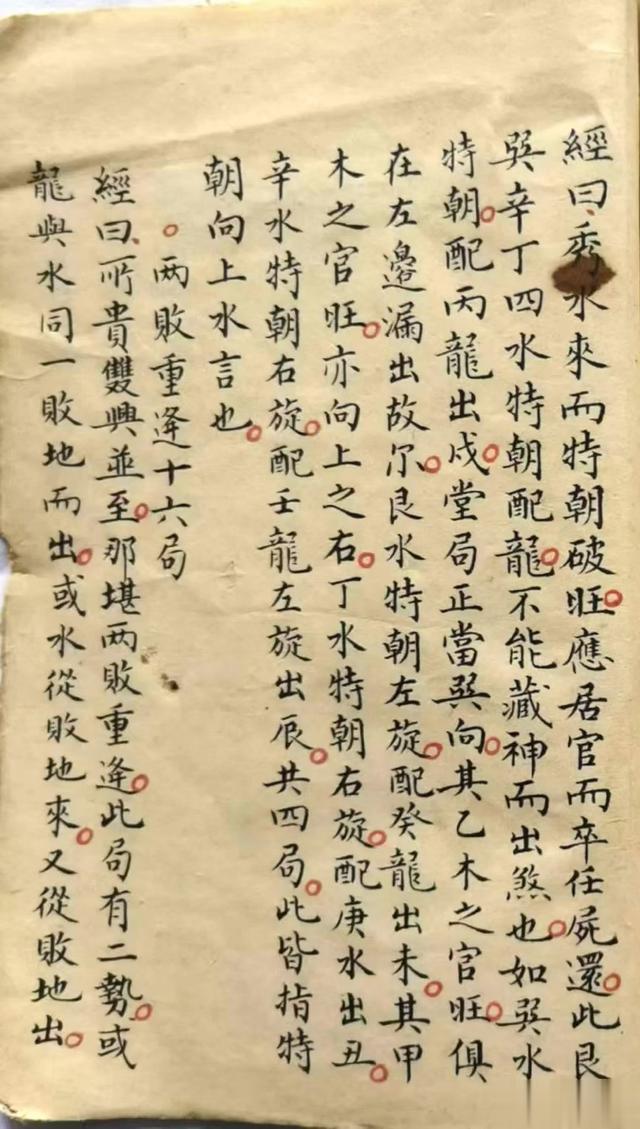 經曰秀水來而特朝破旺。應居官而卒任屍還。此艮
巽辛丁四水特朝配龍。不能藏神而出煞也。如巽水
特朝。配丙龍出戍。堂局正當巽向。其乙木之官旺。俱
在左邊漏出故尔。艮水特朝左旋。配癸龍出未。其甲
木之官旺。亦向上之右。丁水特朝右旋。配庚水出丑。
辛水特朝右旋。配壬龍左旋出辰。共四局。此皆指特
朝向上水言也。
。兩敗重逢十六局
經曰、所貴雙興並至。那堪兩敗重逢。此局有二勢。或
龍與水同一敗地而出。或水從敗地來。又從敗地出。